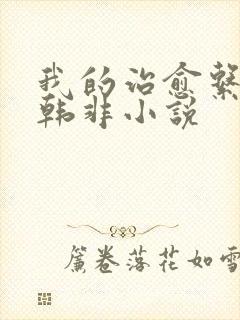 我的治愈系
韩非小说
簾卷落花如雪